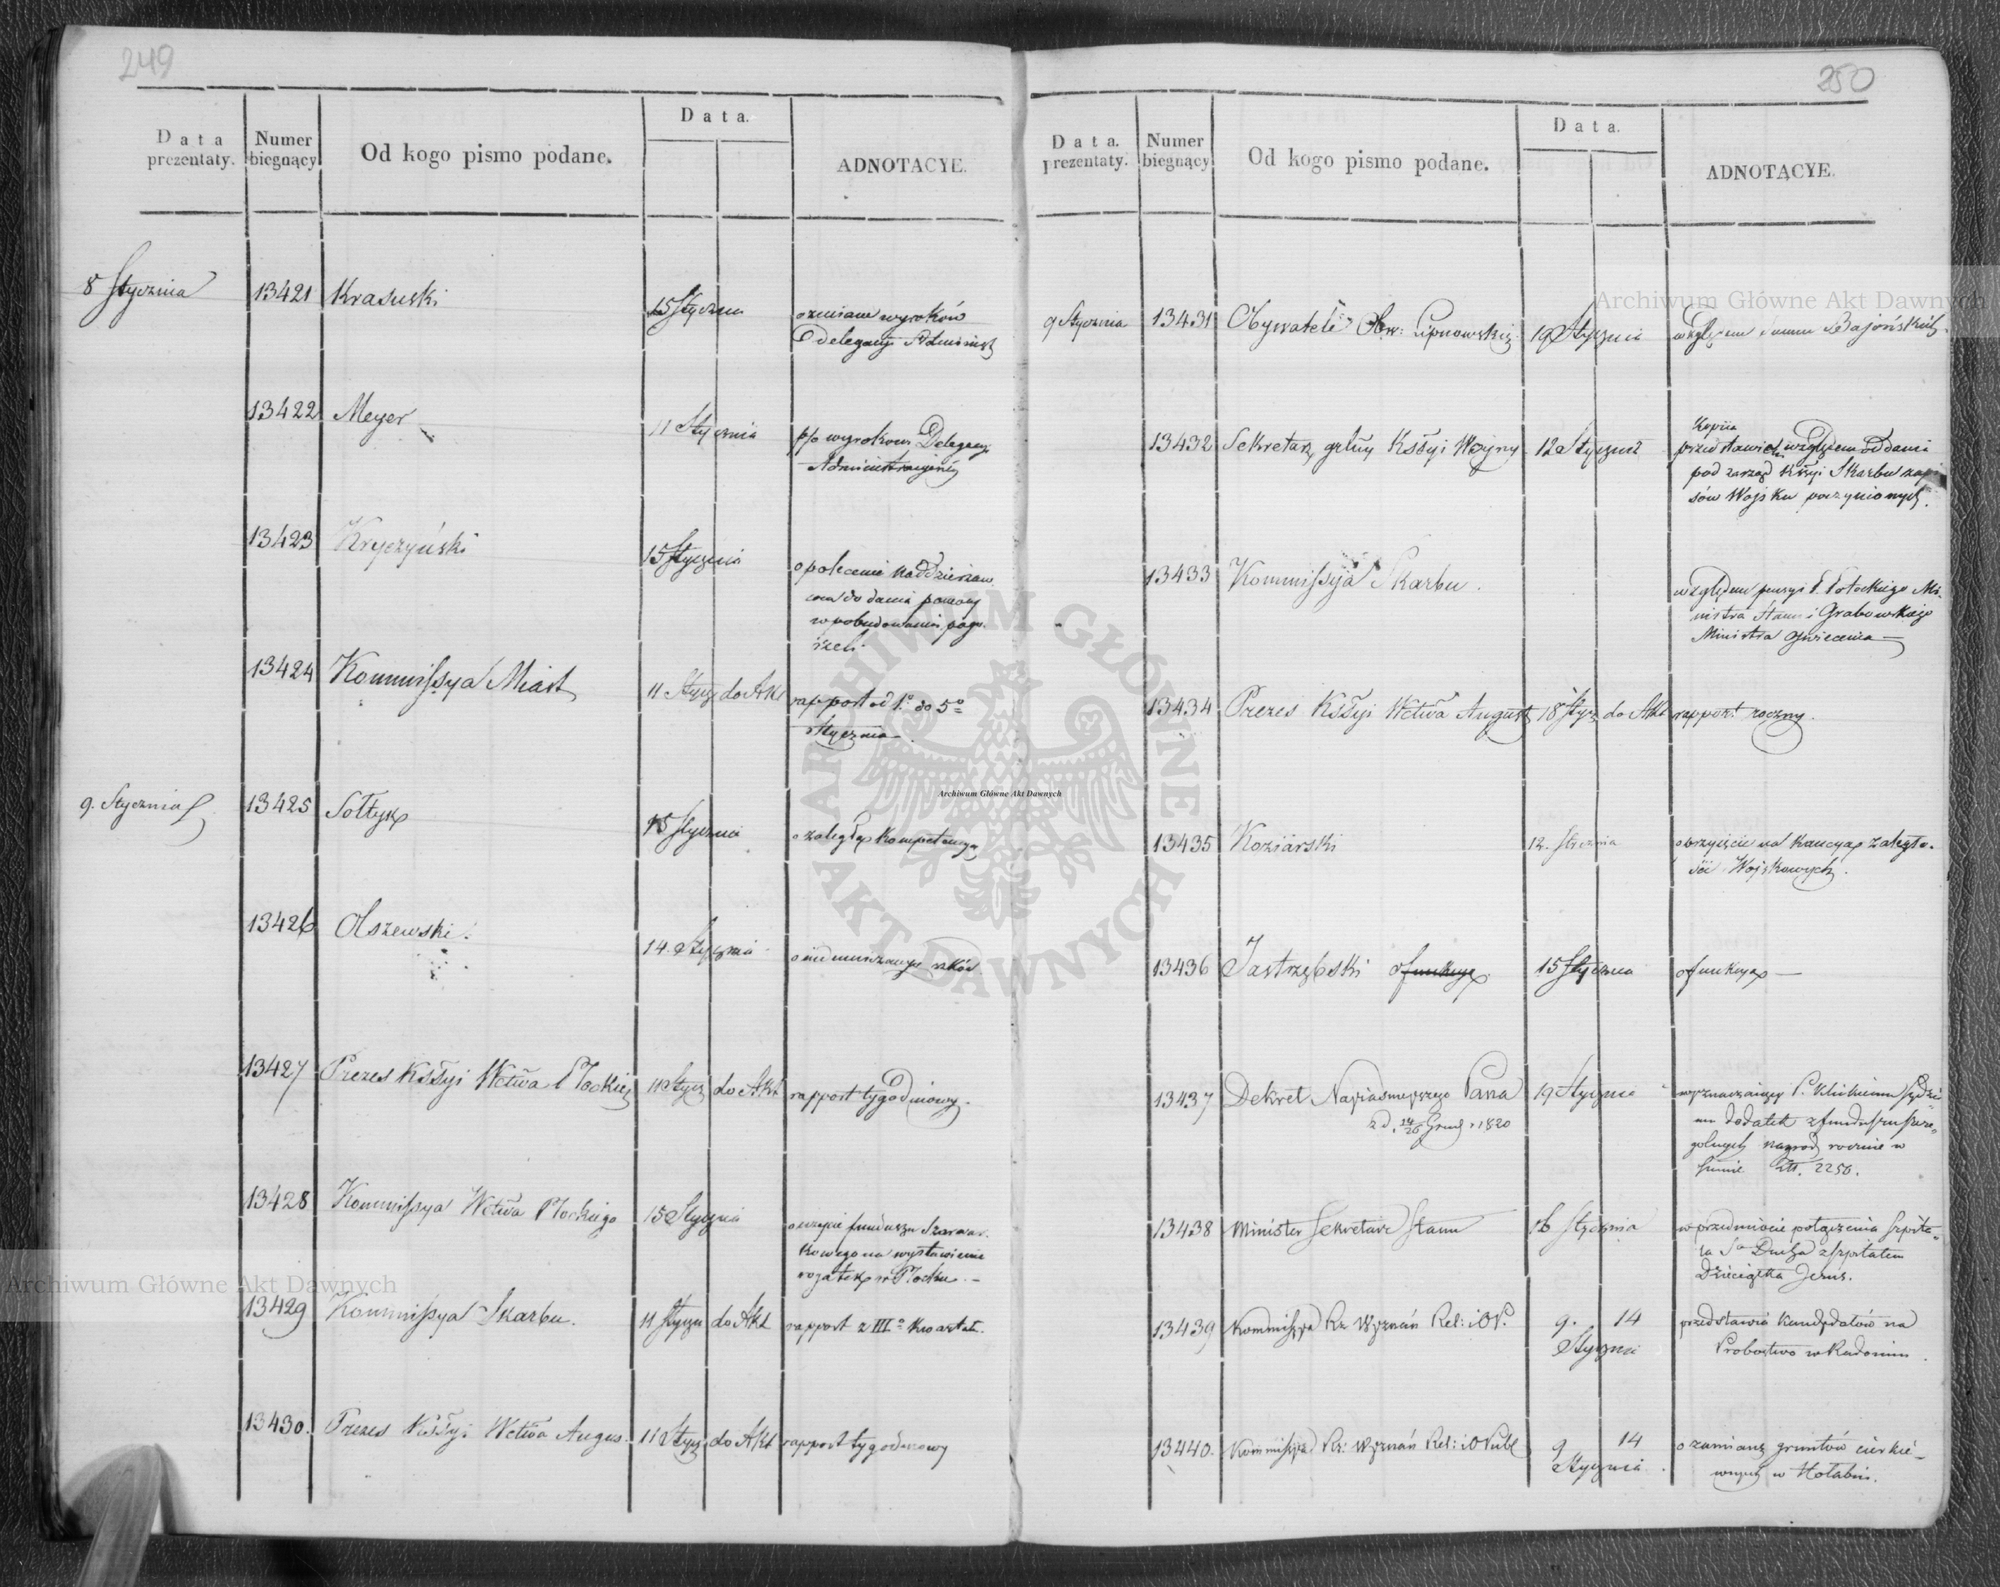 249
Data prezentaty.
Numer biegnący
Od kogo pismo podane.
Data.
ADNOTACYE.
8 Stycznia
13421 Krasuski 15 Stycznia o zmianę wyroków
Delegacyi Administ
13422 Meyer 11 Stycznia p/o wyrokowi Delegacyi
Administracyjnéy
13423 Kryczyński 15 Stycznia o polecenie Naddzierżaw
do dania pomocy
w pobudowaniu pogo
rzeli.
13424 Kommissya Miast 11 Stycz do Akt rapport od 1o do 5o
Stycznia
9. Stycznia
13425 Sołtyk 15 Stycznia o zaległą kompetencyą
13426 Olszewski. 14. Stycznia
13427 Prezes Kśsyi Wctwa Płockiej 11 Stycz do Akt rapport tygodniowy.
13428 Kommissya Wctwa Płockiego 15 Stycznia o użycie funduszu Szarwar.
kowego na wystawienie
rogatek w Płocku.
13429 Kommissya Skarbu. 11 Stycz do Akt rapport z IIIo kwartału.
13430. Prezes Kśsyi Wctwa Augus. 11 Stycz do Akt rapport tygodniowy
250
Data. prezentaty.
Numer biegnący
Od kogo pismo podane.
Data.
ADNOTACYE.
9 Stycznia 13431 Obywatele Obw: Lipnowskiego 19 Stycznia względem summ Bajońskich.
13432 Sekretarz grlny Kśsyi Woyny 12 Stycznia Kopiia
przedstawień względem oddania
pod zarząd Kśsyi Skarbu zapi
sów Woysku poczynionych.
13433 Kommissyja Skarbu. względem pensyi P. Potockiego Mi-
nistra Stanu i Grabowskiego
Ministra Oświecenia
13434 Prezes Kśsyi Wctwa August 18 Stycz do Akt rapport roczny.
13435 Koziarski 12. Stycznia o przyjęcie na kaucyą zaległo-
ści Woyskowych.
13436 Jastrzębski o funkcyą 15 Stycznia o funkcyą
13437 Dekret Nayiaśnieyszego Pana 19 Stycznia wyznaczaiący P.
z d. 14/26 Grud. 1820
dodatek z funduszu szcze-
gólnych nagrod rocznie w
summie Złt. 2250.
13438 Minister Sekretarz Stanu 16 Stycznia w przedmiocie połączenia Szpita-
la So Ducha z szpitalem
Dzieciątka Jezus.
13439 Kommissya Rz. Wyznań Rel: i O P. 9. 14 przedstawia kandydatów na
Stycznia Probostwo w Radomiu.
13440. Kommissya Rz. Wyznań Rel: i O Publ 9 14 o zamianę gruntów cerkie-
Stycznia wnych w Hołabiu.
Archiwum Główne Akt Dawnych
ARCHIWUM GŁÓWNE AKT DAWNYCH
Archiwum Główne Akt Dawnych
Archiwum Główne Akt Dawnych